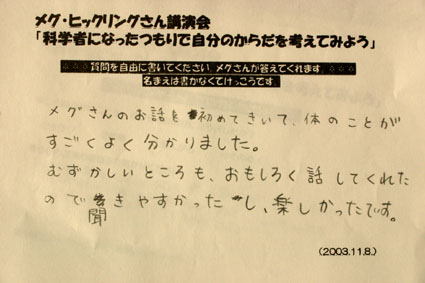 メグ・ヒックリングさん講演会
「科学者になったつもりで自分のからだを考えてみよう」
∴∴∴質問を自由に書いてください メグさんが答えてくれます∴∴∴
名まえは書かなくてけっこうです
メグさんのお話を初めてきいて、体のことが
すごくよく分かりました。
むずかしいところも、おもしろく話してくれた
ので聞きやすかったし、楽しかったです。
(2003.11.8.)